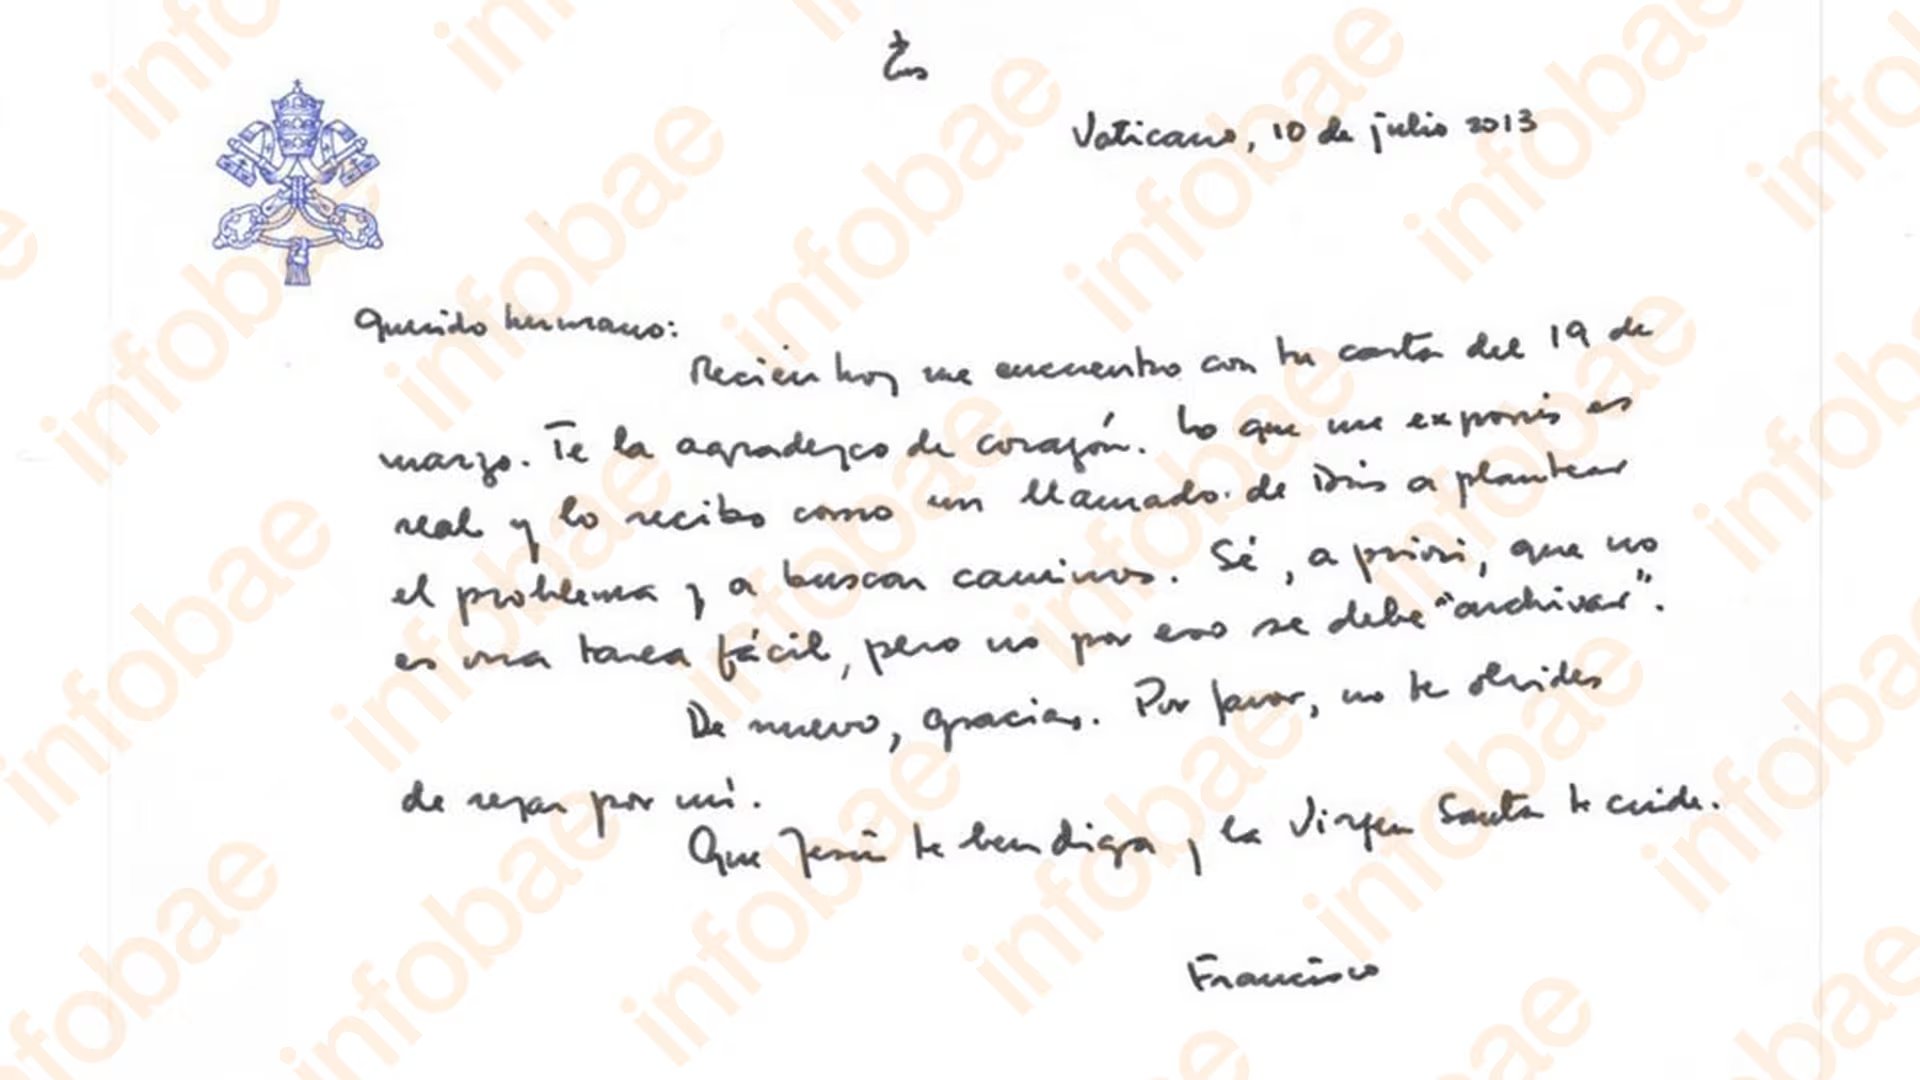 Vaticano, 10 de julio 2013
Querido hermano:
Recien hoy me encuentro con tu carta del 19 de
marzo. Te la agradezco de corazón. Lo que me exponés es
real y lo recibo como un llamado de Dios a plantear
el problema y a buscar caminos. Sé, a priori, que no
es una tarea fácil, pero no por eso se debe "archivar".
De nuevo, gracias. Por favor, no te olvides
de rezar por mí.
Que Jesús te bendiga y la Virgen Santa te cuide.
Francisco
infobae